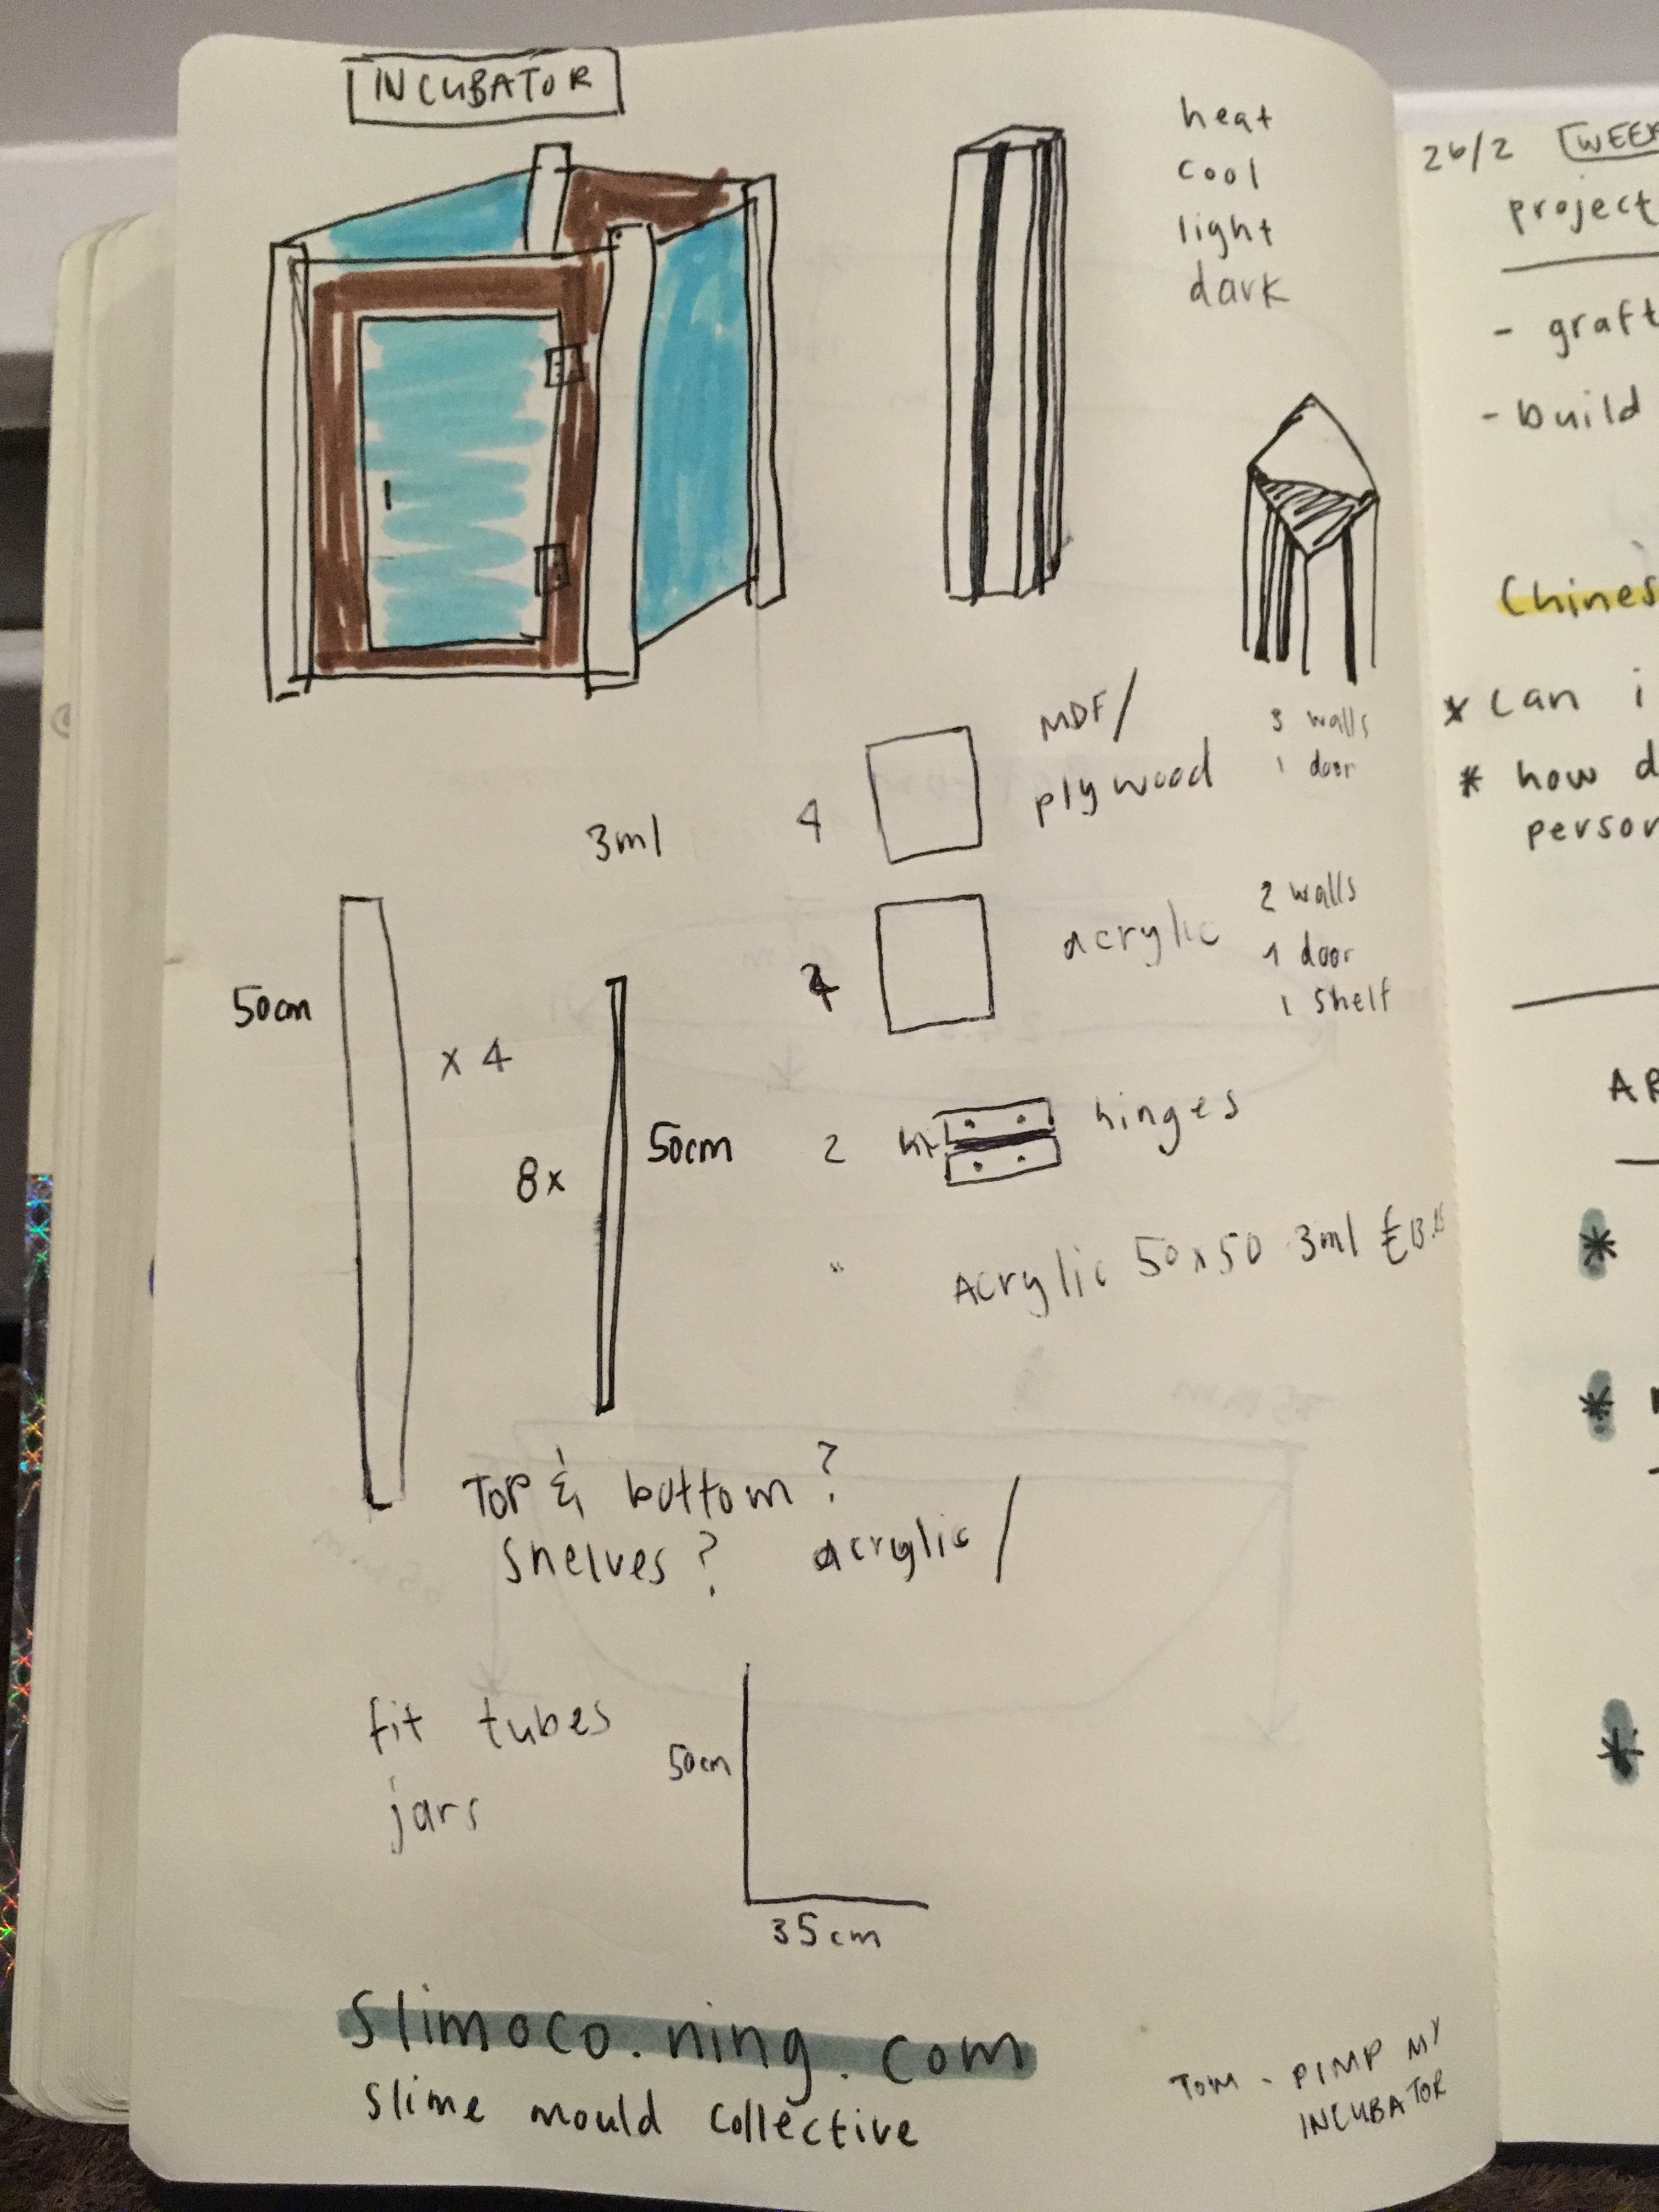 INCUBATOR
heat
cool
light
dark
MDF/
plywood
3 walls
1 door
4
3ml
acrylic
2 walls
1 door
1 shelf
4
50cm
x 4
8x
50cm
2
hinges
Acrylic 50x50 3ml
TOP & bottom?
Shelves? acrylic/
fit tubes
jars
50cm
35cm
Slimoco.ning.com
Slime mould collective
TOM - PIMP MY
INCUBATOR
26/2
project
- graft
- build
Chines
* can i
* how d
person